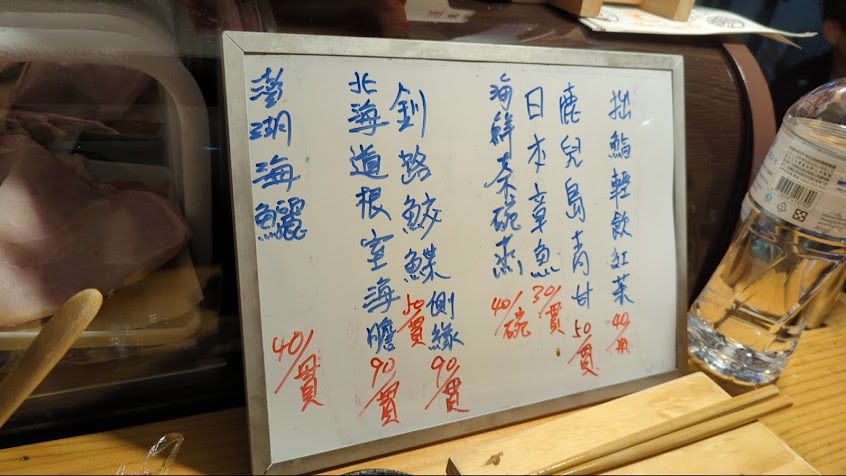 拙鮨輕飲紅茶 40/瓶
鹿兒島青甘 50/貫
日本章魚 30/貫
海鮮茶碗蒸 40/碗
釧路鮫鰈 50/貫 側緣 90/貫
北海道根室海膽 90/貫
澎湖海鱺 40/貫